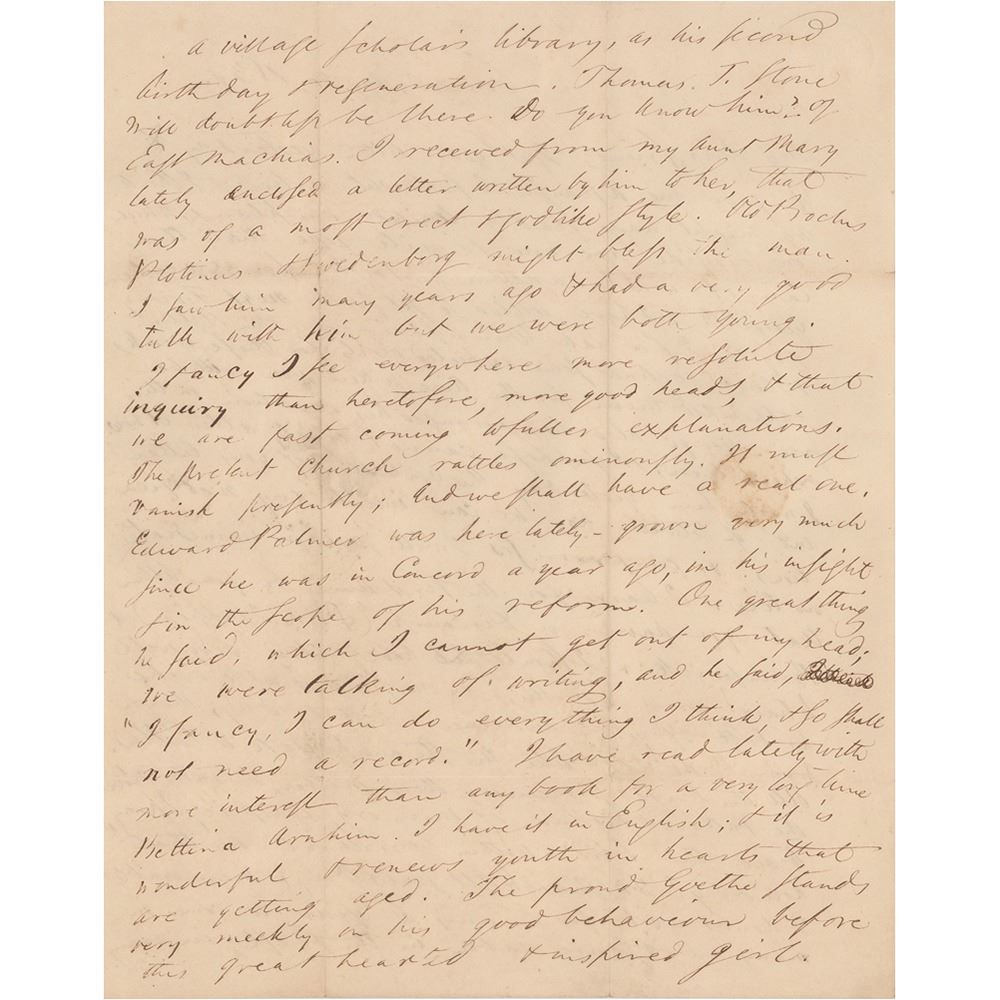 a village scholar's library, as his second
birthday & regeneration. Thomas. T. Stone
will doubtless be there. Do you know him? of
East Machias. I received from my Aunt Mary
lately enclosed a letter written by him to her, that
was of a most erect & godlike style. Old Proclus
Plotinus & Swedenborg might bless the man.
I saw him many years ago & had a very good
talk with him but we were both young.
I fancy I see everywhere more resolute
inquiry than heretofore, more good heads, & that
we are fast coming to fuller explanations.
The present Church rattles ominously. It must
vanish presently; And we shall have a real one.
Edward Palmer was here lately - grown very much
since he was in Concord a year ago, in his insight
& in the scope of his reform. One great thing
he said, which I cannot get out of my head;
we were talking of writing, and he said,
"I fancy, I can do everything I think, & so shall
not need a record." I have read lately with
more interest than any book for a very long time
Bettina Arnhim. I have it in English; & it is
wonderful & renews youth in hearts that
are getting aged. The proud Goethe stands
very meekly on his good behaviour before
this great hearted & inspired girl.